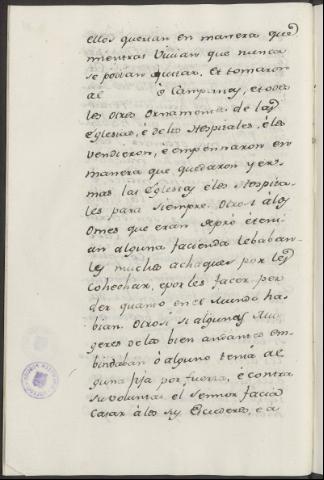 ellos querian en manera que
mientras vivian que nunca
se podian quitar. Et tomaron
al è Campanas, et todos
los otros Ornamentos de las
Eglesias, è de los Hospitales, è los
vendieron, è empennaron en
manera que quedaron yer-
mas las Eglesias è los Hospita-
les para siempre. Otrosi à los
Omes que eran è teni-
an alguna facienda lebaban-
les muchos achaques por les
Cohechar, e por les facer per
der quanto en el Mundo ha-
bian. Otrosi si algunas Mu-
geres de las bien andantes em-
bindaban ò alguno tenia al
guna fija por fuerza, è contra
su voluntat el Sennor facia
casar à los sus Escuderos, e a